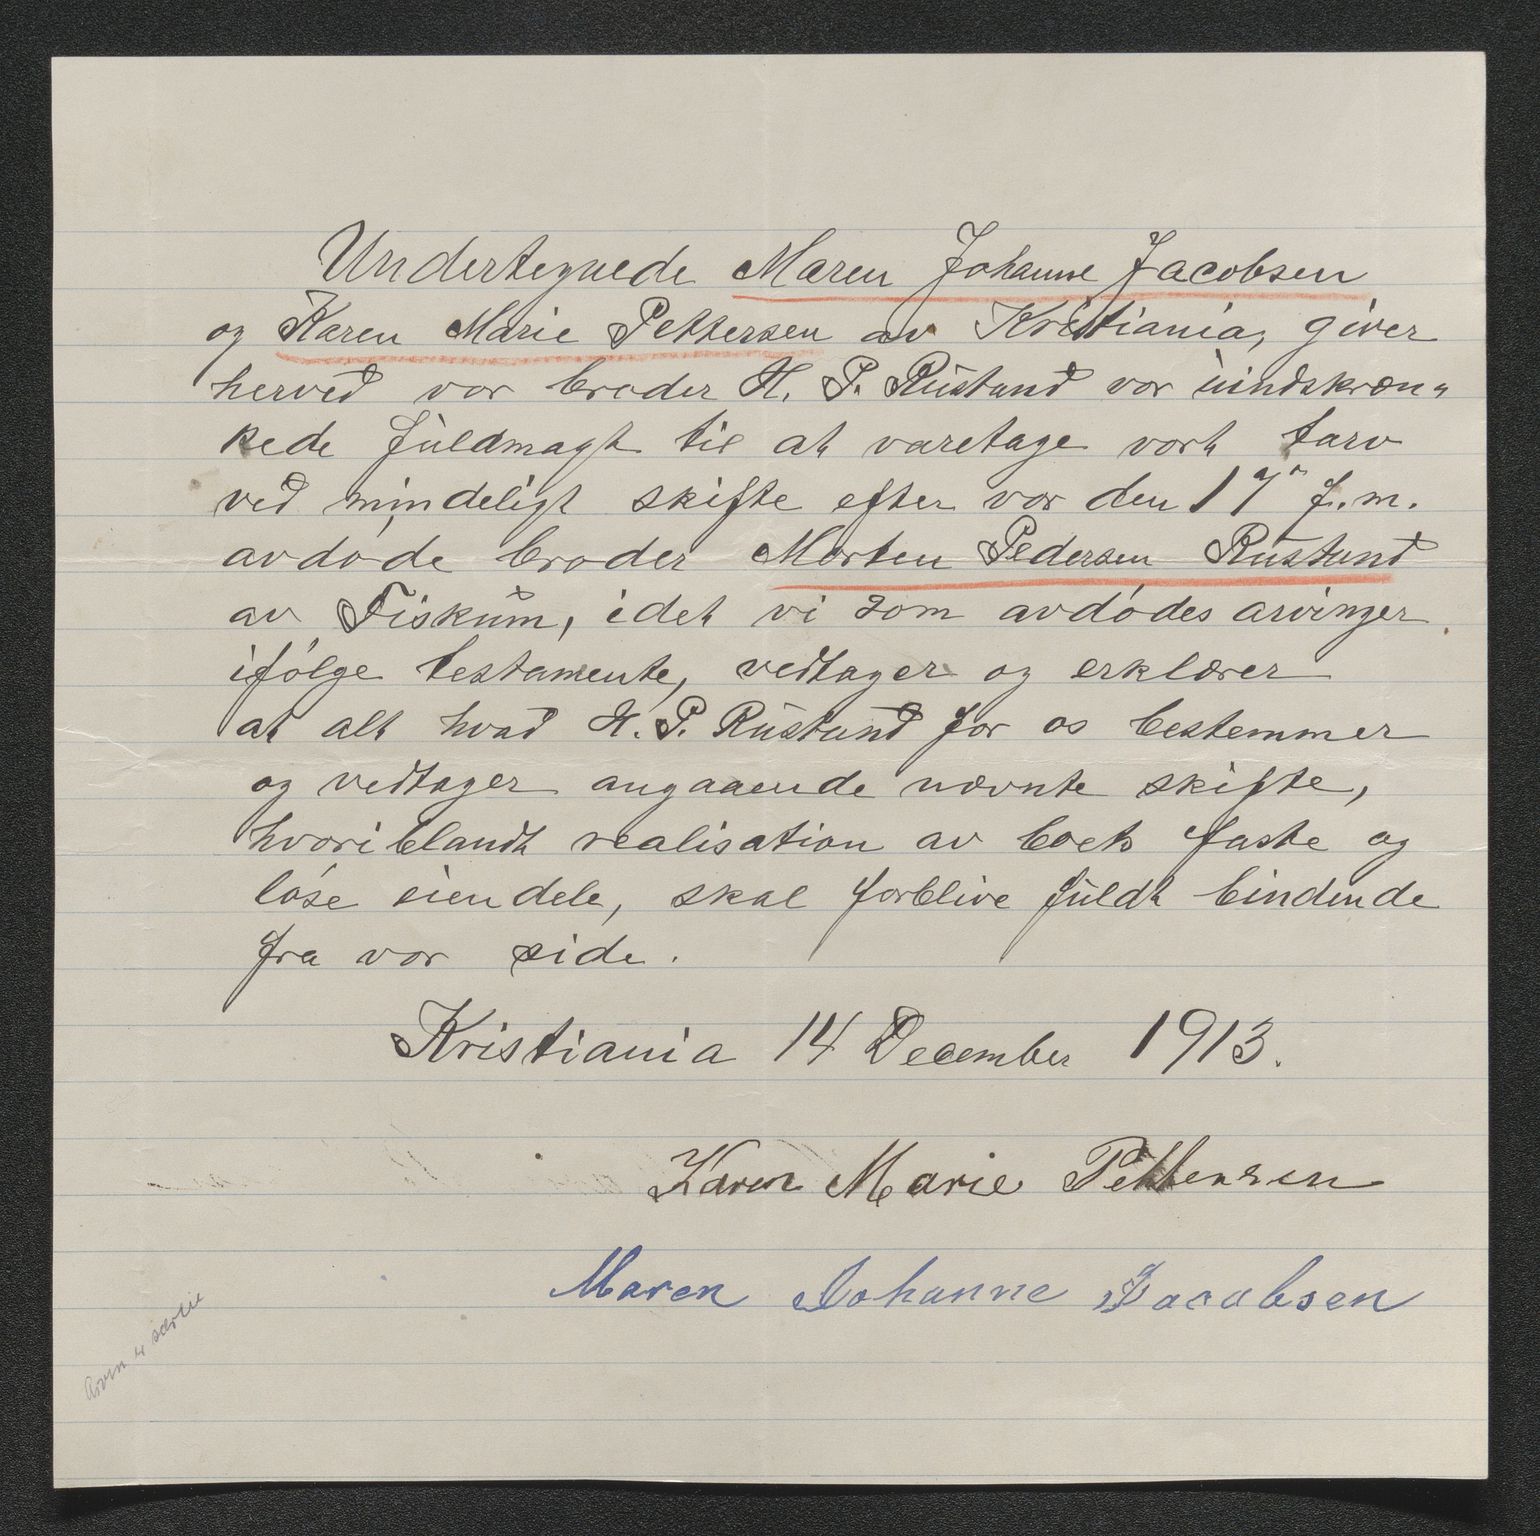 Undertegnede Maren Johanne Jacobsen
og Karen Marie Pettersen av Kristiania, giver
herved vor broder H. P. Rustand vor uindskræn-
kede fuldmagt til at varetage vort tarv
ved mindeligt skifte efter vor den 17' f.m.
avdøde broder Morten Pedersen Rustand
av Fiskum, idet vi som avdødes arvinger
ifølge testamente, vedtager og erklærer
at alt hvad H. P. Rustand for os bestemmer
og vedtager angaaende nævnte skifte,
hvoriblandt realisation av boets faste og
løse eiendele, skal forblive fuldt bindende
fra vor side.
Kristiania 14 December 1913.
Karen Marie Pettersen
Maren Johanne Jacobsen
Arven er særeie